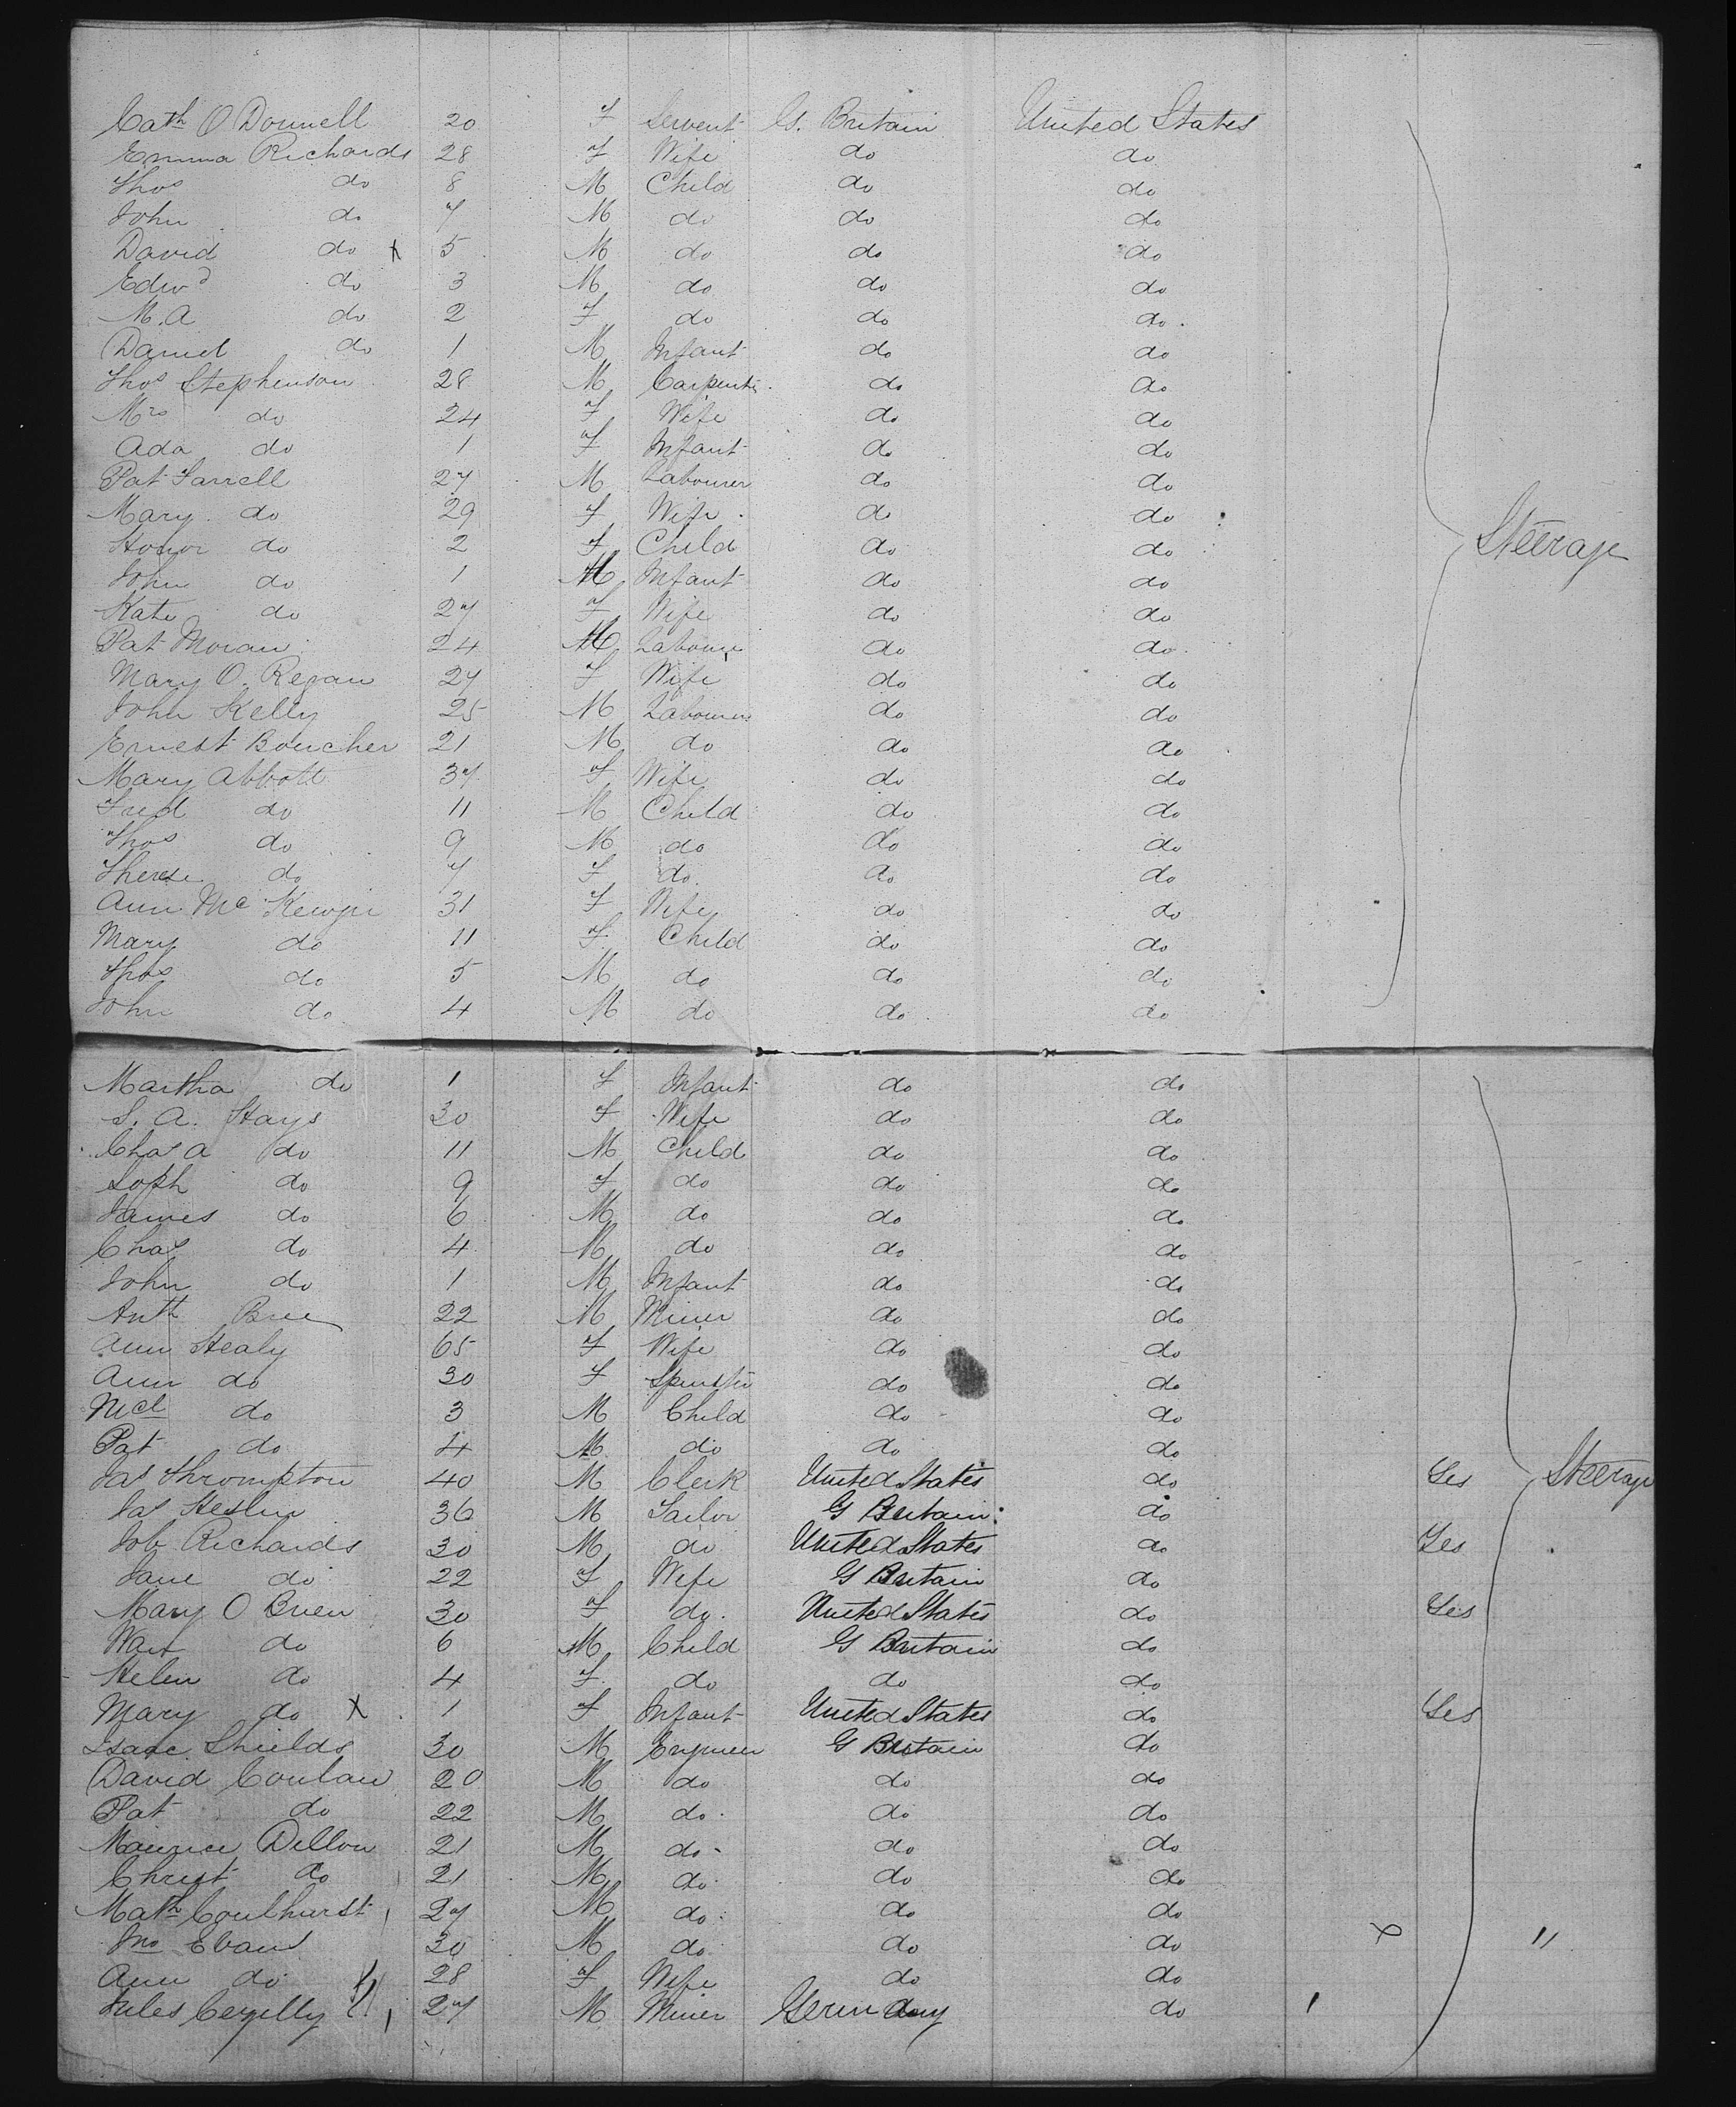 Cath O Donnell 20 F Servent G. Britain United States
Emma Richards 28 F Wife do do
Thos do 8 M Child do do
John do 7 M do do do
David do x 5 M do do do
Edwd do 3 M do do do
M. A do 2 F do do do.
Daniel do 1 M Infant do do
Thos Stephenson 28 M Carpenter do do
Mrs do 24 F Wife do do
Ada do 1 F Infant do do
Pat Farrell 27 M Labourer do do
Mary do 29 F Wife do do
Honor do 2 F Child do do Steerage
John do 1 M Infant do do
Kate do 27 F Wife do do
Pat Moran 24 M Labourer do do
Mary O. Regan 27 F Wife do do
John Kelly 25 M Labourer do do
Ernest Boucher 21 M do do do
Mary Abbott 37 F Wife do do
Fred do 11 M Child do do
Thos do 9 M do do do
Therese do 7 F do do do
Ann Mc 31 F Wife do do
Mary do 11 F Child do do
Thos do 5 M do do do
John do 4 M do do do
Martha do 1 F Infant do do
S. A. Hays 30 F Wife do do
Chas A do 11 M Child do do
Soph do 9 F do do do
James do 6 M do do do
Chas do 4 M do do do
John do 1 M Infant do do
Anth Bree 22 M Miner do do
Ann Healy 65 F Wife do do
Ann do 30 F Spinster do do
Mcl do 3 M Child do do
Pat do 4 M do do do
Jas Thrompton 40 M Clerk United States do Yes Steerage
Jas Heslin 36 M Tailor G Britain do
Job Richards 30 M do United States do Yes
Jane do 22 F Wife G Britain do
Mary O Brien 30 F do. United States do Yes
do 6 M Child G Britain do
Helen do 4 F do do do
Mary do x 1 F Infant United States do Yes
Isaac Shields 30 M Engineer G Britain do
David Conlan 20 M do do do
Pat do 22 M do. do do
Maurice Dillon 21 M do - do do
Christ do 21 M do. do do
Math Coulhurst 27 M do. do do
Jno Evans 30 M do do do x "
Ann do 28 F Wife do do
Jules 27 M Miner Germany do 1